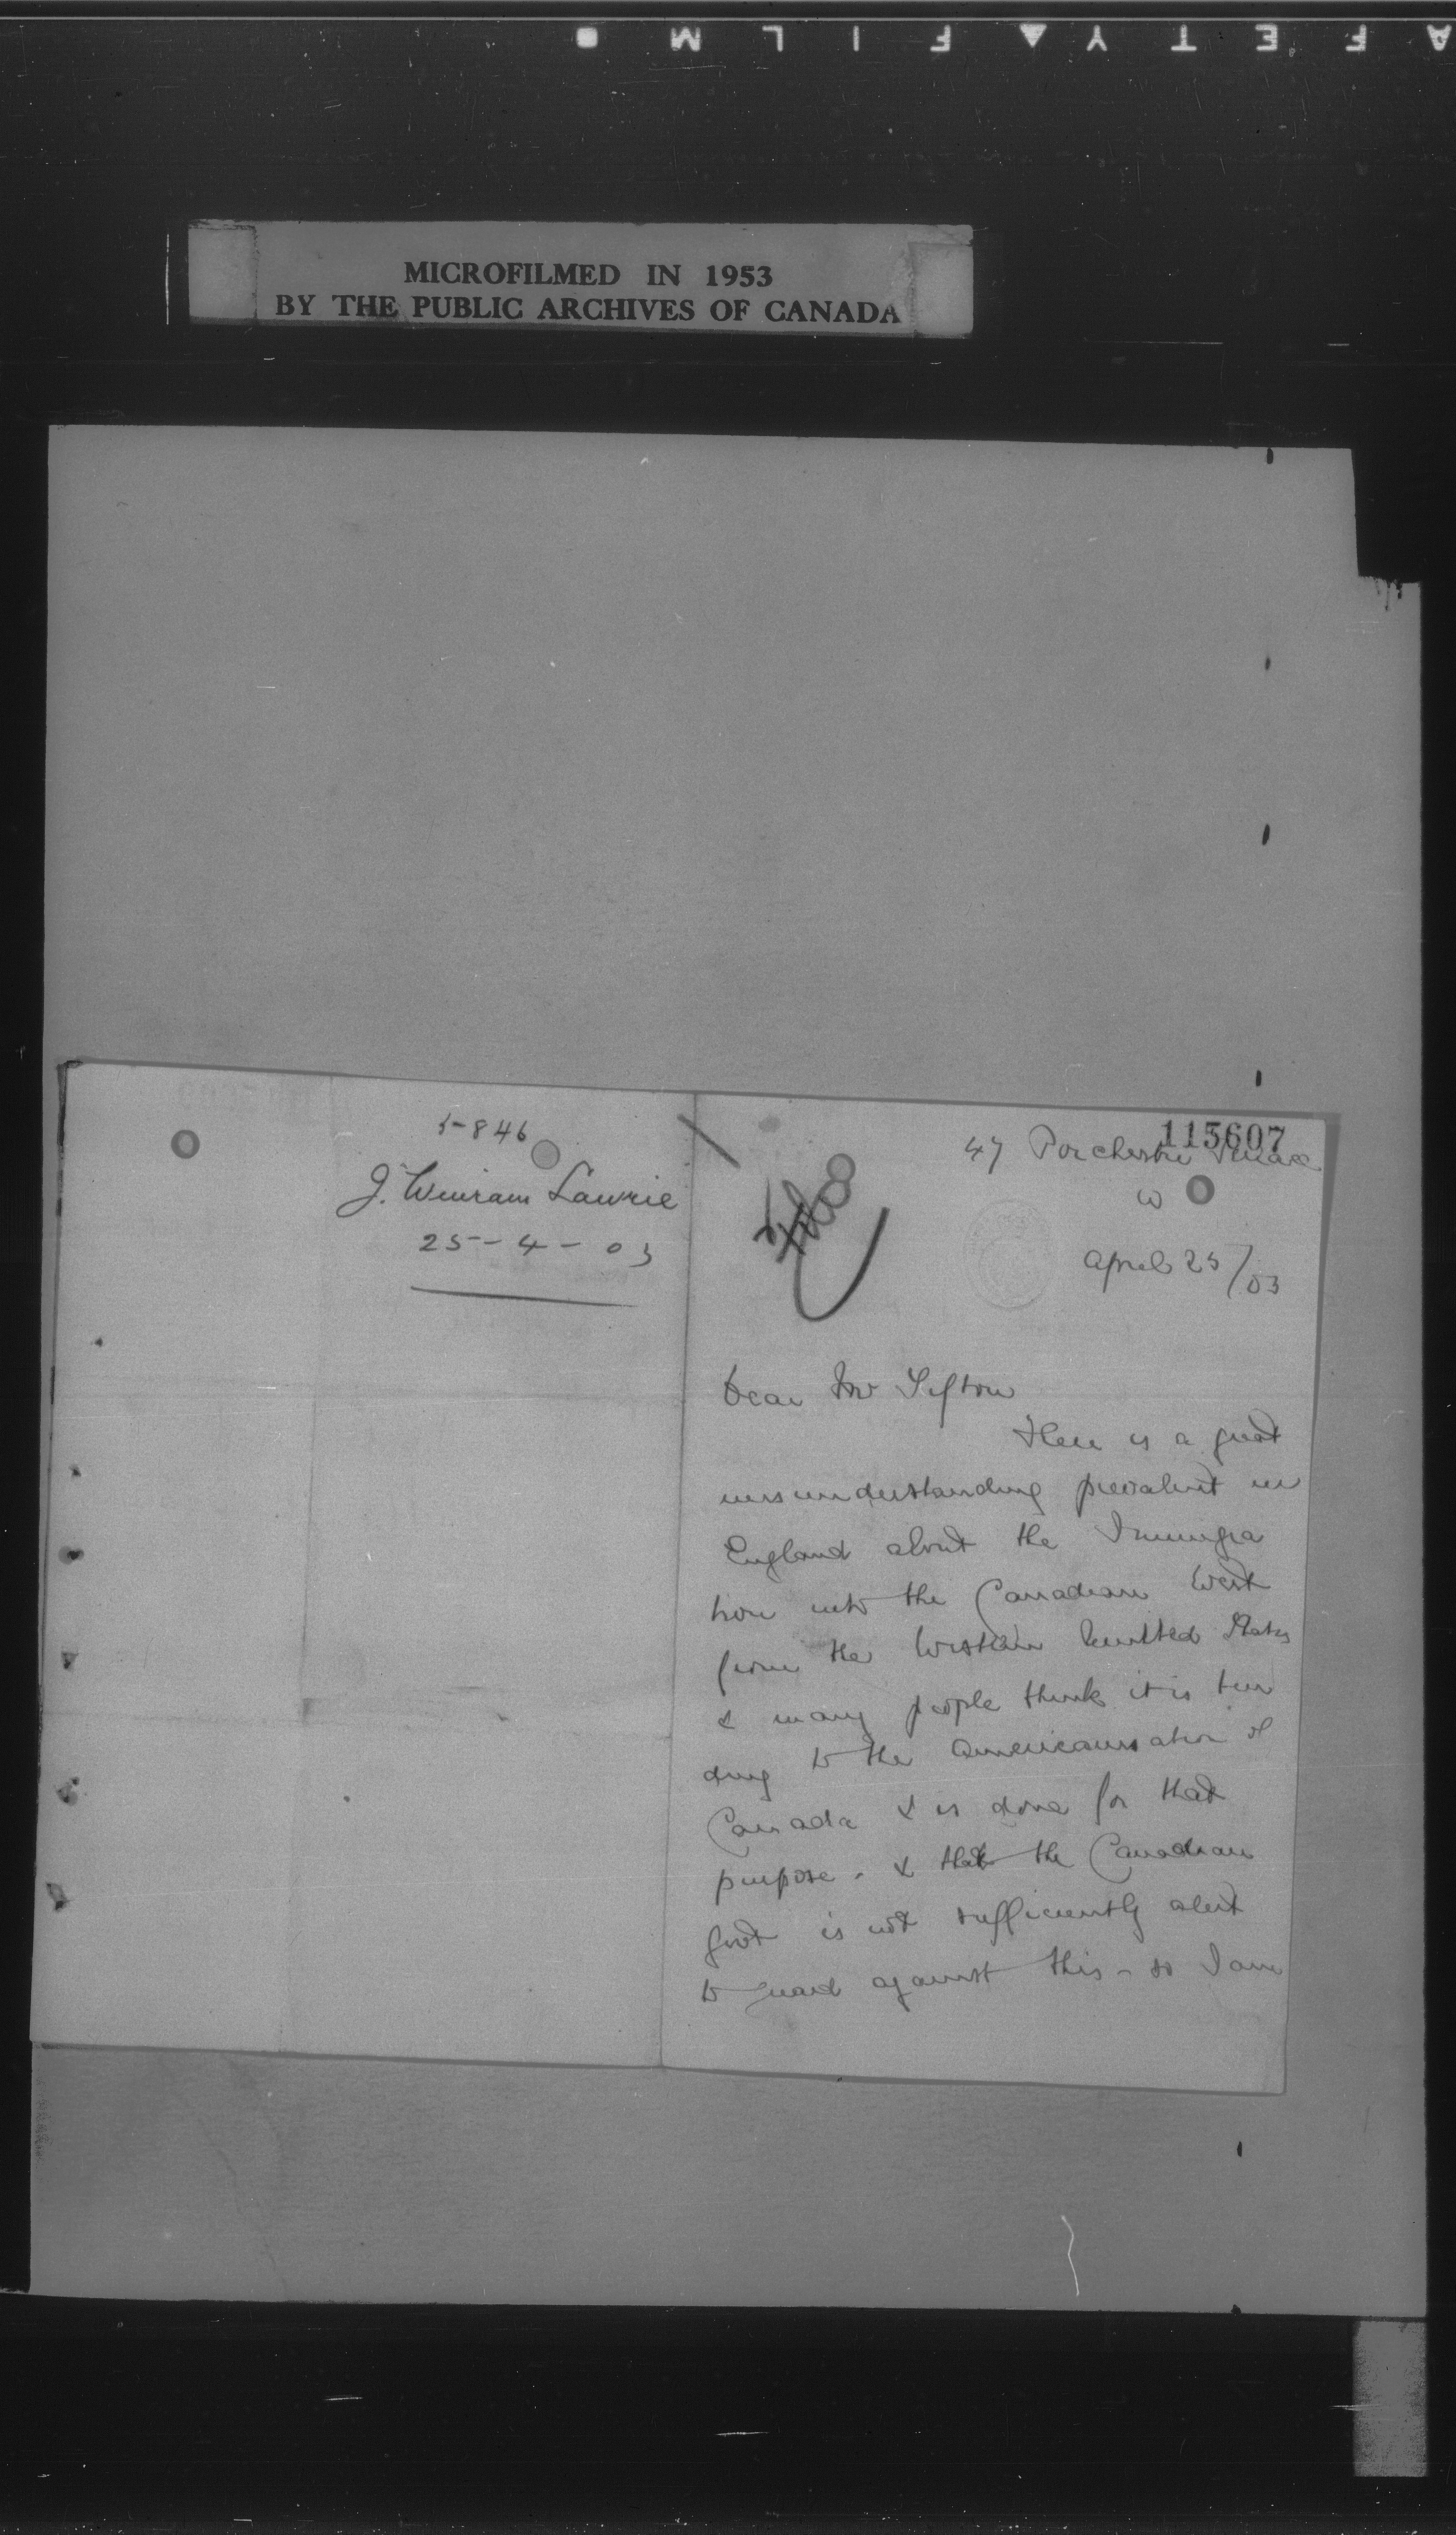 SAFETY FILM
MICROFILMED IN 1953
BY THE PUBLIC ARCHIVES OF CANADA
5-846
J. Winram Lawrie
25-4-03
115607
47 Porchester Square
W
April 25/03
Dear Mr Sifton
There is a great
misunderstanding prevalent in
England about the Immigra
tion into the Canadian West
from the Western United States
& many people think it is ten
ding to the Americanisation of
Canada & is done for that
purpose - & that the Canadian
Govt is not sufficiently alert
to guard against this - so I am